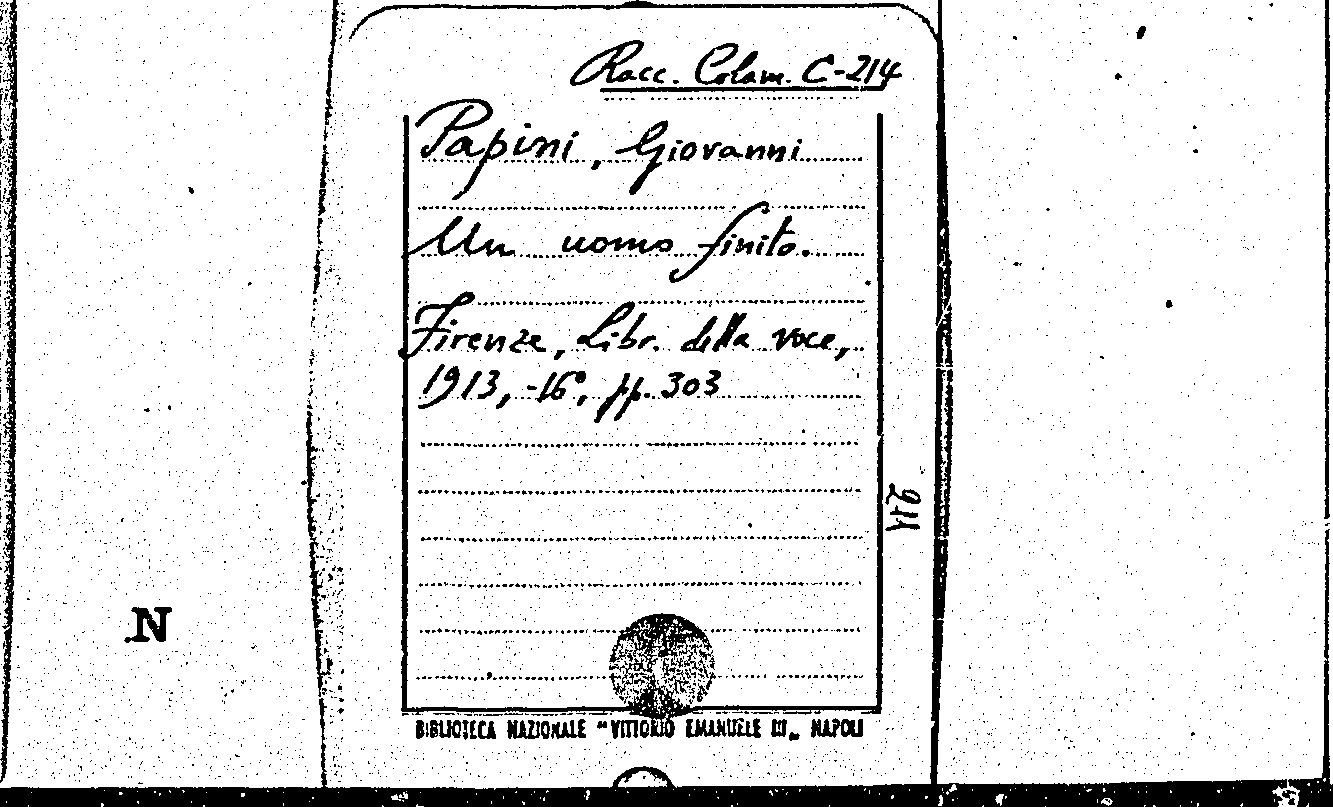 Racc. Colam. C-214
Papini, Giovanni
Un uomo finito.
Firenze, Libr. della voce,
1913, -16°, pp. 303
N
BIBLIOTECA NAZIONALE "VITTORIO EMANUELE III„ NAPOLI